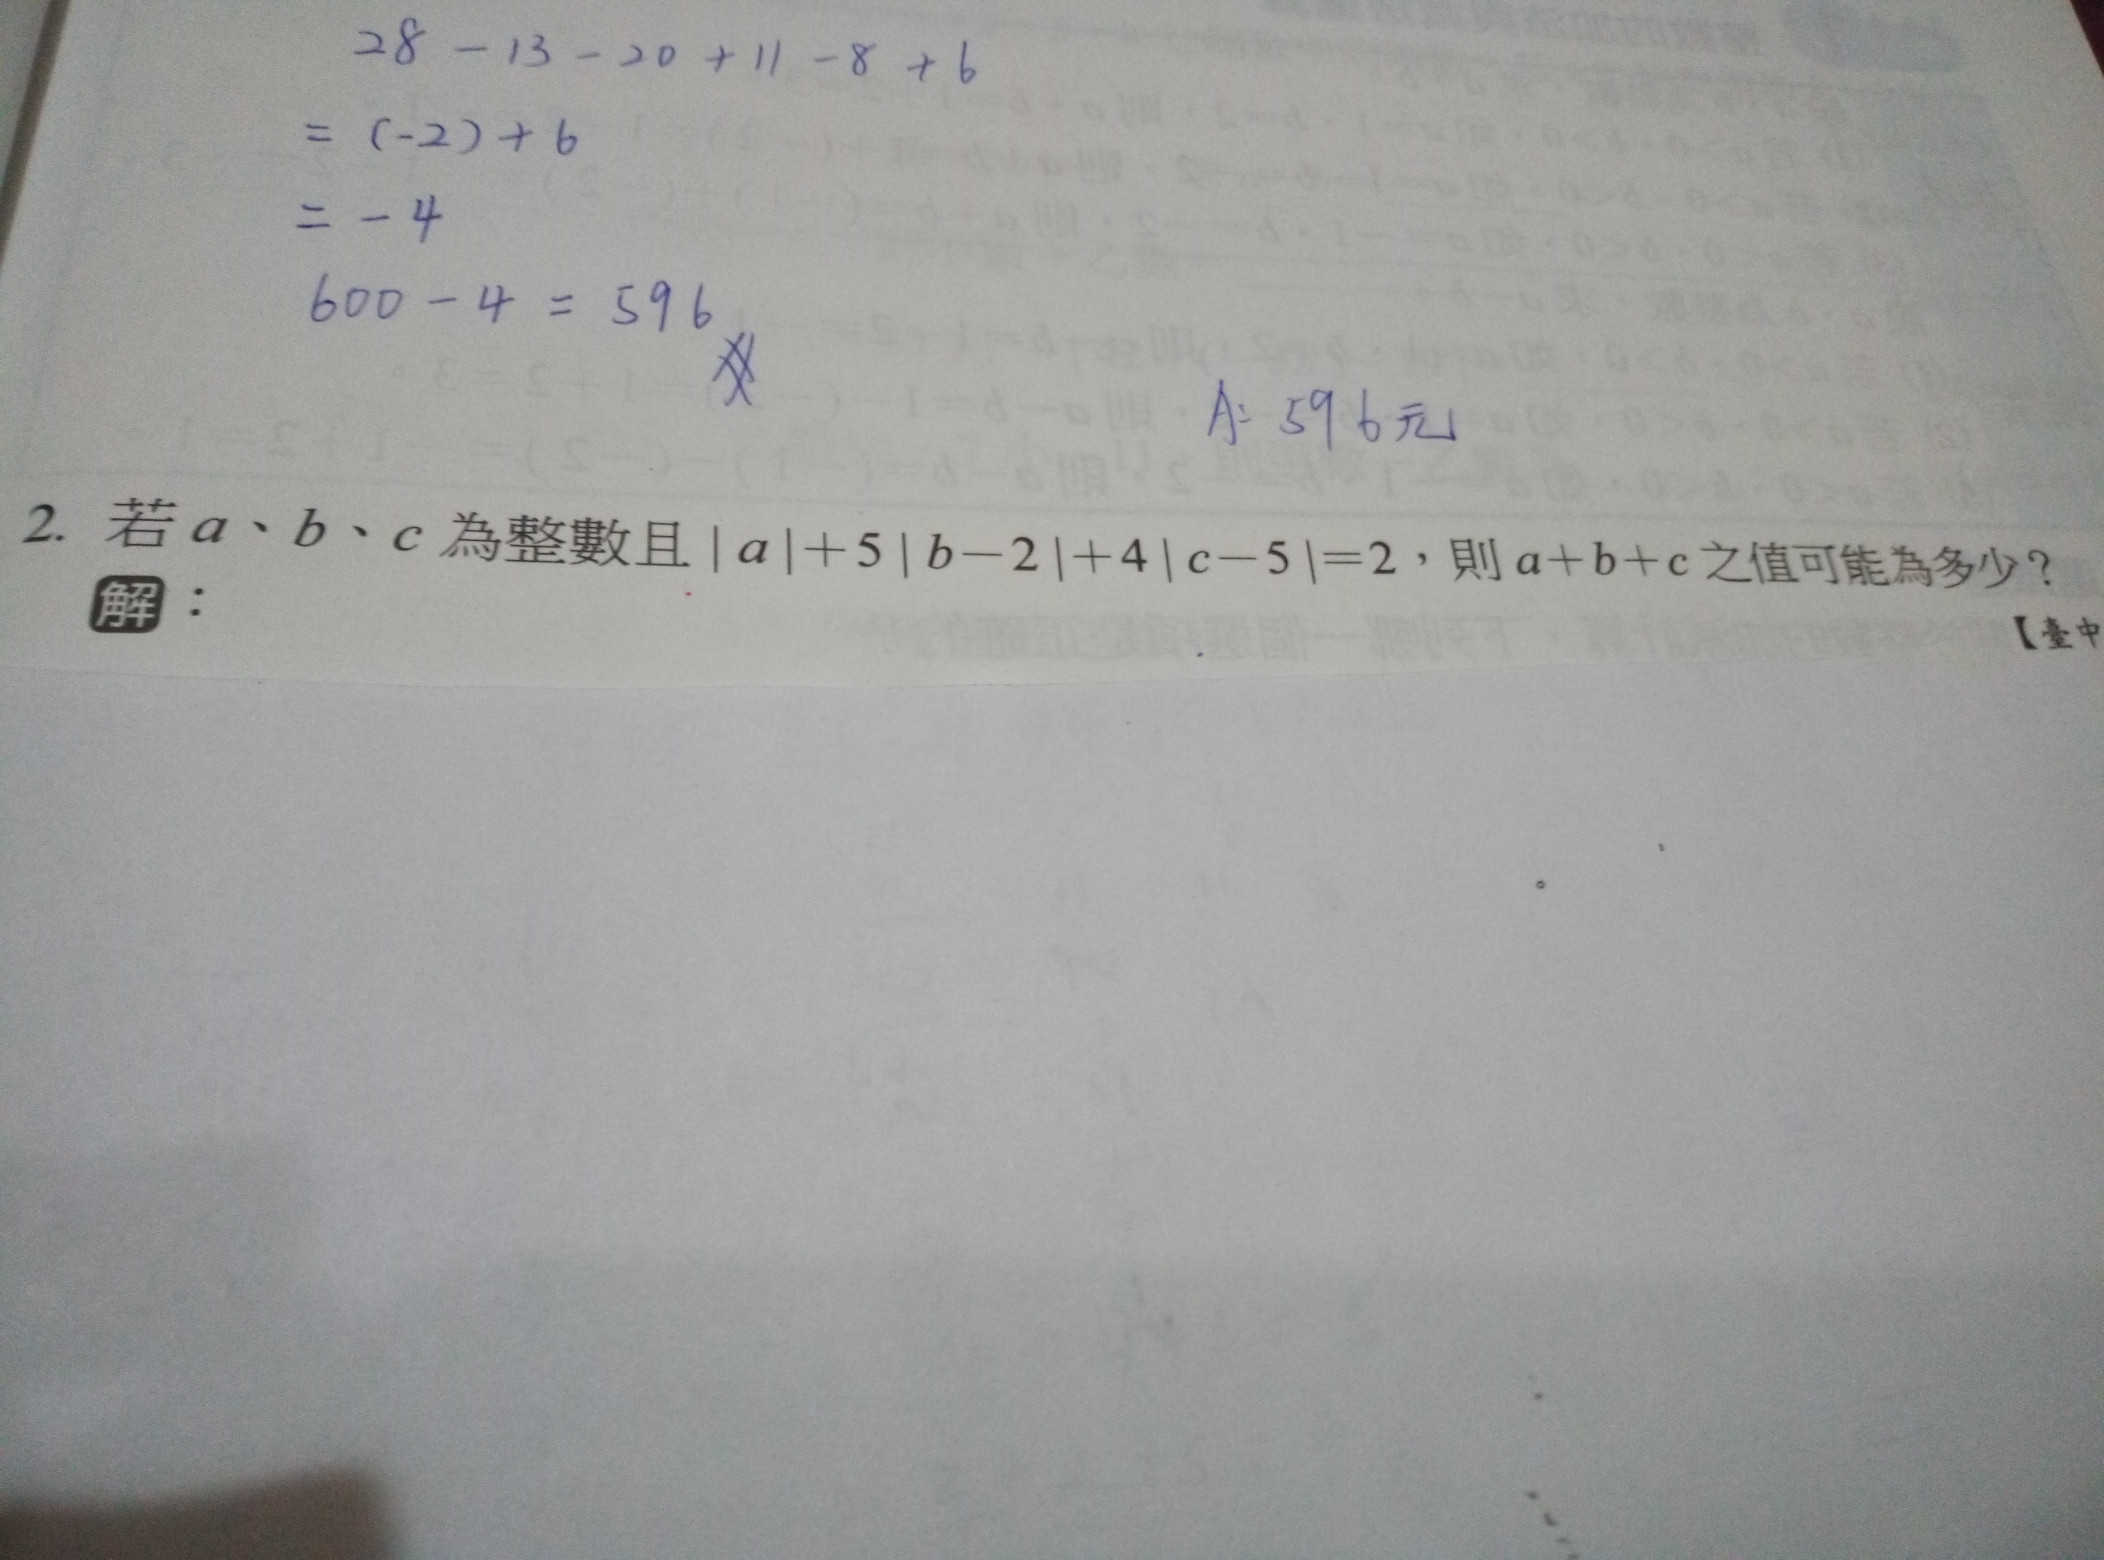 28 - 13 - 20 + 11 - 8 + 6
= (-2) + 6
= - 4
600 - 4 = 596
A: 596元
2. 若 a、b、c 為整數且 | a |+5 | b－2 |+4 | c－5 |=2，則 a+b+c 之值可能為多少？
解：
【臺中